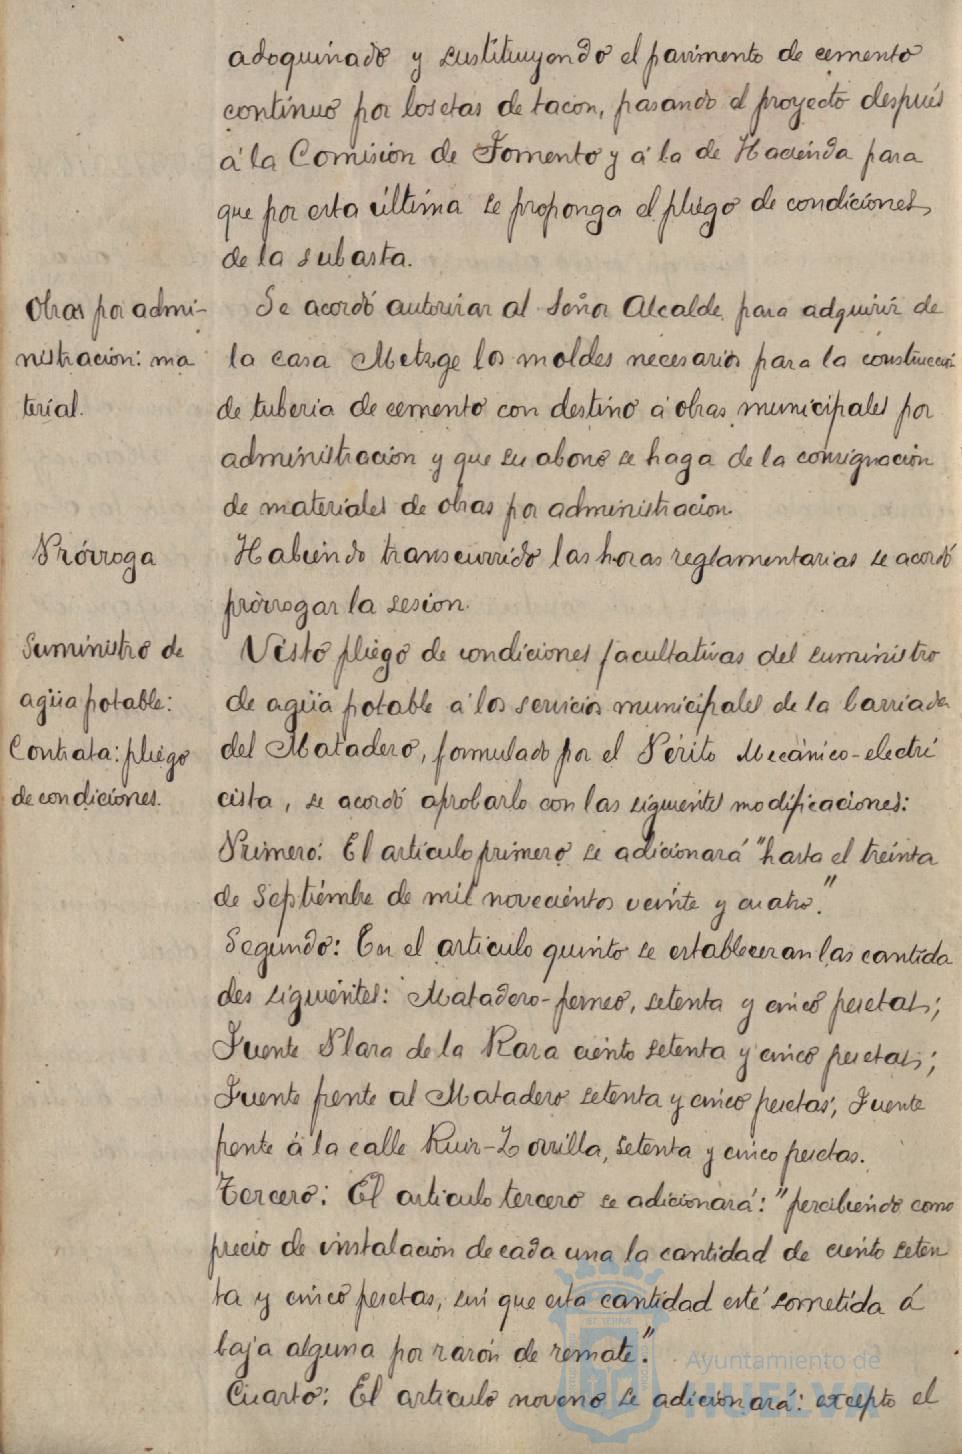 adoquinado y sustituyendo el pavimento de cemento
contínuo por losetas de tacon, pasando el proyecto después
á la Comisión de Fomento y á la de Hacienda para
que por esta última se proponga el pliego de condiciones
de la subasta.
Obras por admi-
nistración: ma
terial.
Se acordó autorizar al Señor Alcalde para adquirir de
la casa Metzge los moldes necesarios para la construcción
de tuberia de cemento con destino á obras municipales por
administración y que su abono se haga de la consignación
de materiales de obras por administración.
Prórroga
Habiendo transcurrido las horas reglamentarias se acordó
prórrogar la sesion.
Suministro de
agüa potable:
Contrata: pliego
de condiciones.
Visto pliego de condiciones facultativas del suministro
de agüa potable á los servicios municipales de la barriada
del Matadero, formulado por el Périto Mecánico-electri
cista, se acordó aprobarlo con las siguientes modificaciones:
Primero: El artículo primero se adicionará "hasta el treinta
de Septiémbre de mil novecientos veinte y cuatro."
Segundo: En el artículo quinto se estableceran las cantida
des siguientes: Matadero-ferneo, setenta y cinco pesetas;
Fuente Plaza de la Raza ciento setenta y cinco pesetas;
Fuente frente al Matadero setenta y cinco pesetas; Fuente
frente á la calle Ruiz-Zorrilla, setenta y cinco pesetas.
Tercero: El artículo tercero se adicionará: "percibiendo como
precio de instalación de cada una la cantidad de ciento seten
ta y cinco pesetas, sin que esta cantidad esté sometida á
baja alguna por razón de remate."
Cuarto: El artículo noveno se adicionará: excepto el
Ayuntamiento de
HUELVA